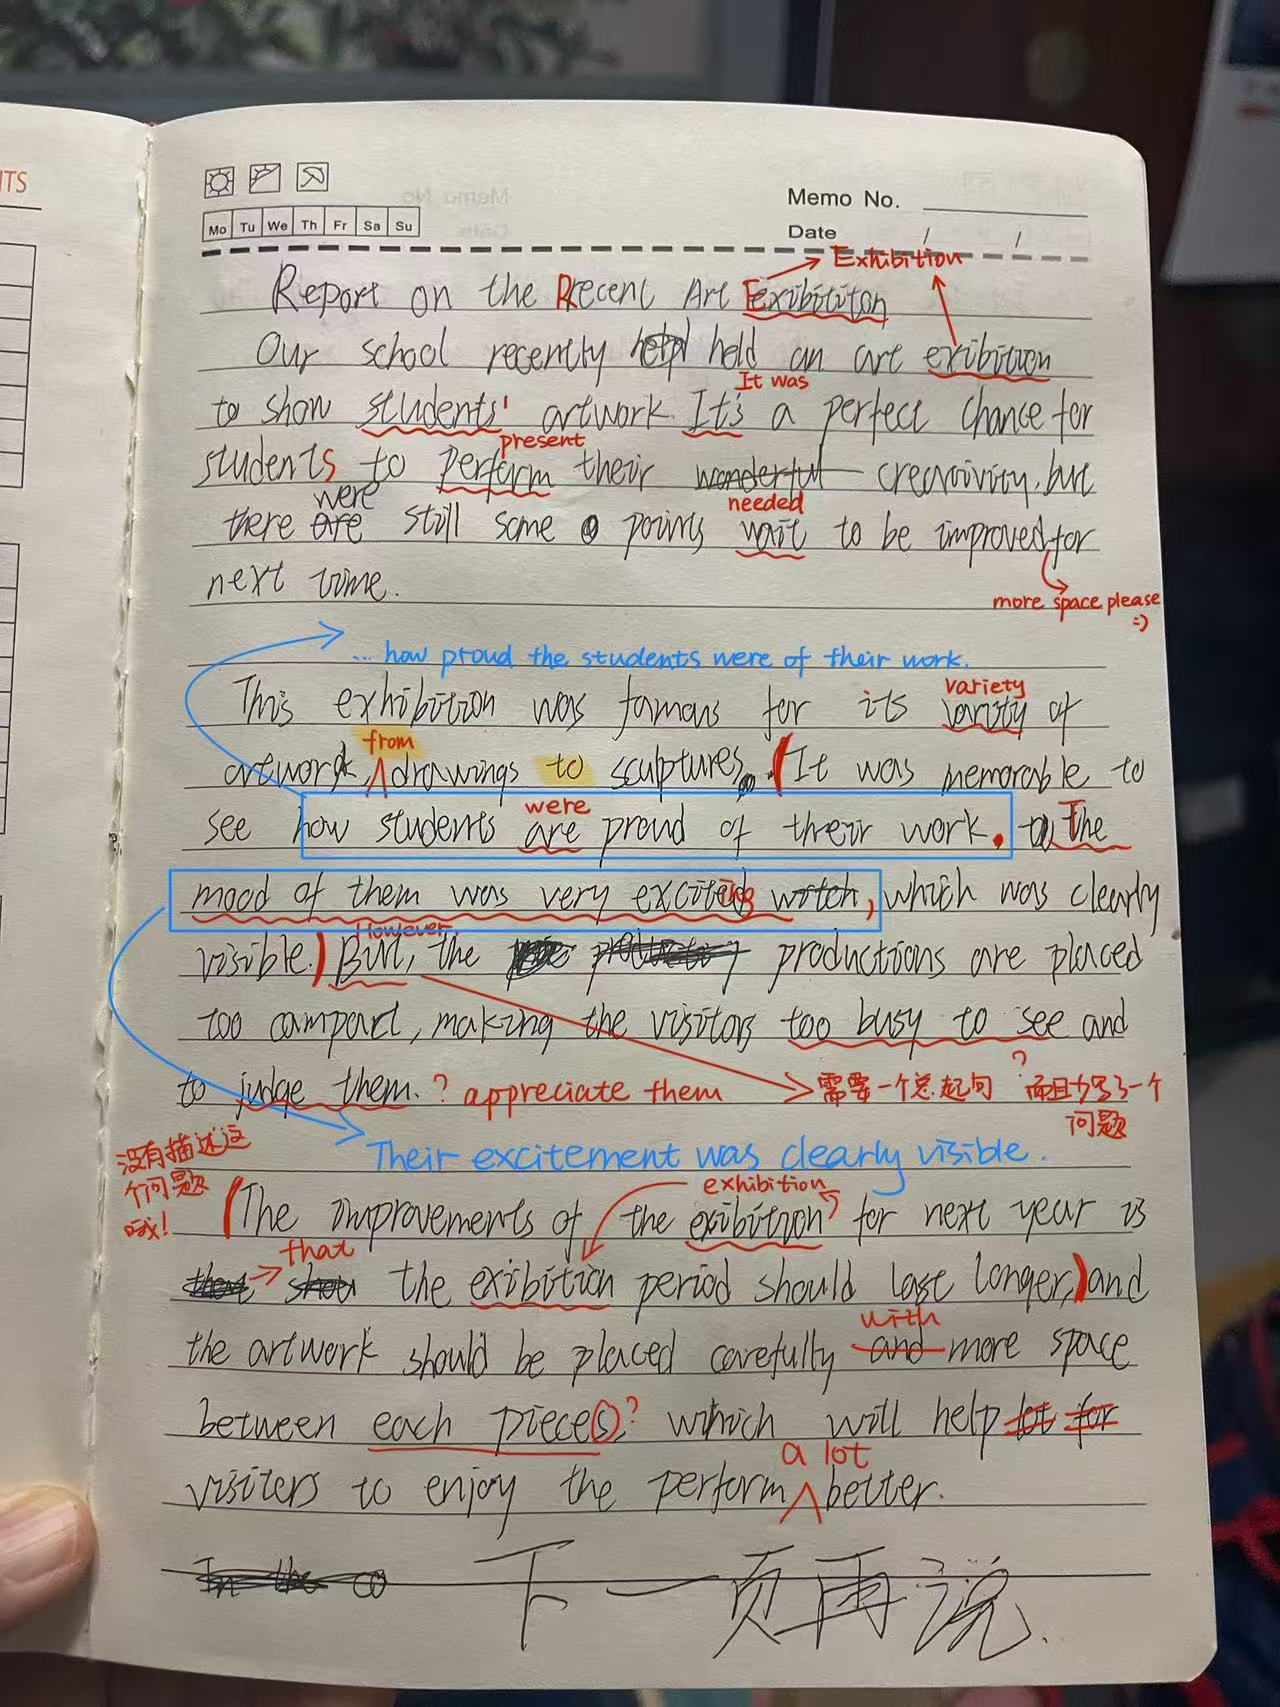 ITS
Memo No.
Mo Tu We Th Fr Sa Su
Date / /
Exhibition
Report on the Recent Art Exibititon
Our school recently held an art exibition
It was
to show students' artwork. It's a perfect chance for
present
students to perform their wonderful creativity, but
were needed
there are still some points wait to be improved, for
next time.
more space please
:)
... how proud the students were of their work.
variety
This exhibition was famous for its varity of
from
artwork drawings to sculptures. (It was memorable to
were
see how students are proud of their work. The
mood of them was very exciteding watch, which was clearly
However,
visible.) But, the productions are placed
too compact, making the visitors too busy to see and
to judge them. ? appreciate them 需要一个总起句 ? 而且少写了一个
问题
没有描述这
个问题
哦!
Their excitement was clearly visible.
exhibition
(The improvements of the exibition for next year is
that
the exibition period should last longer,) and
with
the artwork should be placed carefully and more space
between each piece(s)? which will help lot for
a lot
visiters to enjoy the perform better.
In the co
下一页再说.